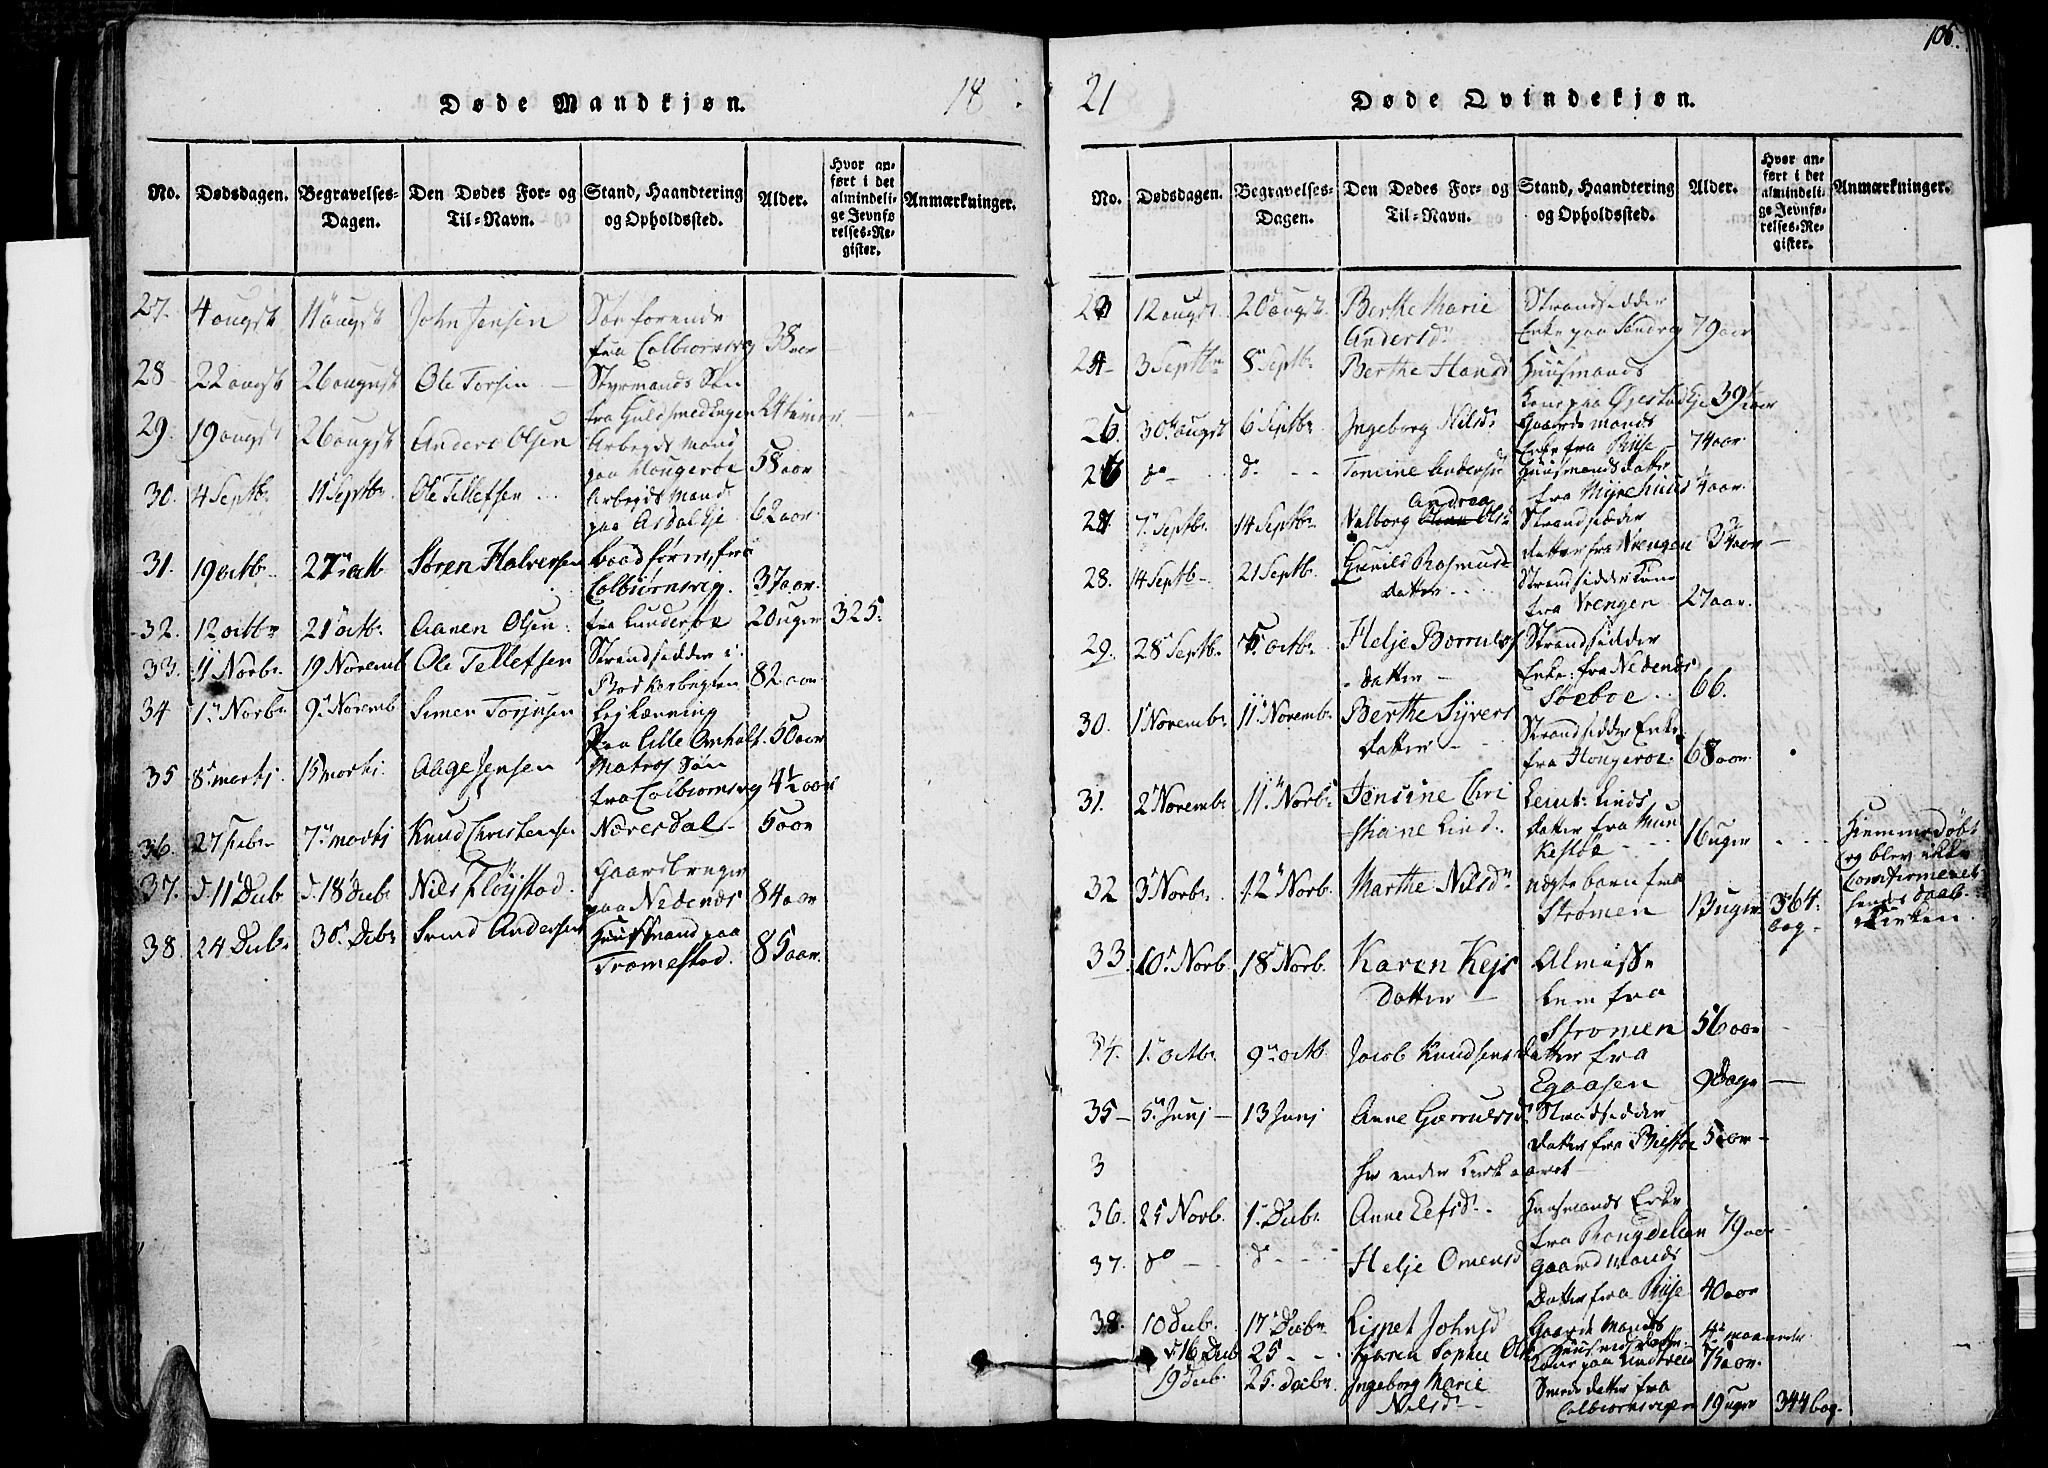 Døde Mandkjøn.
18
No.
Dødsdagen.
Begravelses-
Dagen.
Den Dødes For- og
Til-Navn.
Stand, Haandtering
og Opholdssted.
Alder.
Hvor an-
ført i det
almindeli-
ge Jevnfø
relses-Re-
gister.
Anmærkninger.
27. 4 augst 11 augst John Jensen Søefarende
fra Colbiornsvig 38 aar
28 22 augst 26 august Ole Torsen Styrmands Søn
fra Guldsmedengen 24 timer
29. 19 augst 26 augst Anders Olsen Arbeyds Mand
paa Hougerøe 58 aar
30. 4 Septbr. 11 Septbr. Ole Tellefsen Arbeyds Mand
paa Asdal Eje 62 aar
31. 19 octbr. 27 octb Søren Halversen baadfører, fra
Colbiornsvig. 37 aar
32. 12 octbr 21 octbr. Aanen Olsen fra Lundersøe 20 uger 325
33. 11 Novbr. 19 Novemb Ole Tellefsen Strandsidder i
82 aar
34 1 Novbr. 9 Novemb Simen Torjusen Lejlænning
paa Lille Omholt. 50 aar
35 8 martj. 15 martj. Aage Jensen Matros Søn
fra Colbiornsvig 4½ aar
36. 27 Febr 7 martj Knud Christensen Næresdal 5 aar
37. d. 11 Debr d. 18 Debr Niels Fløystad. Gaardbruger
paa Nedenæs 84 aar
38. 24 Debr. 30 Debr Svend Andersen Huusmand paa
Tromestad. 85 aar
106.
21
Døde Qvindekjøn.
No.
Dødsdagen.
Begravelses-
Dagen.
Den Dødes For- og
Til-Navn.
Stand, Haandtering
og Opholdssted.
Alder.
Hvor an-
ført i det
almindeli-
ge Jevnfø-
relses-Re-
gister.
Anmærkninger.
23 12 augst. 20 augst. Berthe Marie Strandsidder
Andersdr Enke paa Sandvig 79 aar
24 3 Septbr 8 Septbr. Berthe Hansd Huusmands
Kone paa Øjestad Eje 39½ aar
25. 30 augst 6 Septbr Ingeborg Nilsd Gaardmands
Enke fra Rise 74 aar
26 do do Tomine Andersd Huusmands datter
fra Myrehuus ¼ aar
Andrea
27 7 Septbr. 14 Septbr Valborg Olsd Strandsidder
datter fra Vrengen 3¾ aar
28. 14 Septbr 21 Septbr. Gunild Rasmus Strandsidder Kone
datter fra Vrengen 27 aar.
29. 28 Septbr. 5 octbr. Helje Borrulfs Strandsidder
datter Enke: fra Nedenæs
Søeboe 66.
30. 1 Novembr. 11 Novembr. Berthe Syvers Strandsidder Enke
datter fra Hougerøe 68 aar
31. 2 Novembr 11 Novbr. Jensine Chri Leiut: Linds
stiane Lind datter fra Mun
kestøe 16 uger Hiemmedøbt
og blev ikke
Confirmeret
hendes daab
i Kirken.
32 3 Novbr. 12 Novb. Marthe Nilsdr uægte barn fra
Strømen 13 uger 364
bag
33. 10 Novb. 18 Novb. Karen Kejs Almisse
Datter Lem fra
Strømen 56 aar
34. 1 octbr. 9 octb. Jacob Knudsens datter fra
Egaasen 9 Dage
35 5 Junj 13 Junj Anne Gjerrulfsd Strandsidder
datter fra Biestøe 5 aar
3 her ender Kirkeaaret
36. 25 Novb. 1 Debr. Anne Lefsd. Huusmands Enke
fra Rougdellen 79 aar
37. do do Helje Omensd Gaardmands
Datter fra Rise 40 aar
38. 10 Debr. 17 Debr Lispet Johnsd Gaardmands
datter 4 maaneder
d 16 Debr 25 Karen Sophie Ols Huusmands
Kone paa 75 aar.
19 Debr. 25 Debr. Ingeborg Marie Smeds datter fra
Nilsd Colbiornsvigen 19 uger 344 bag